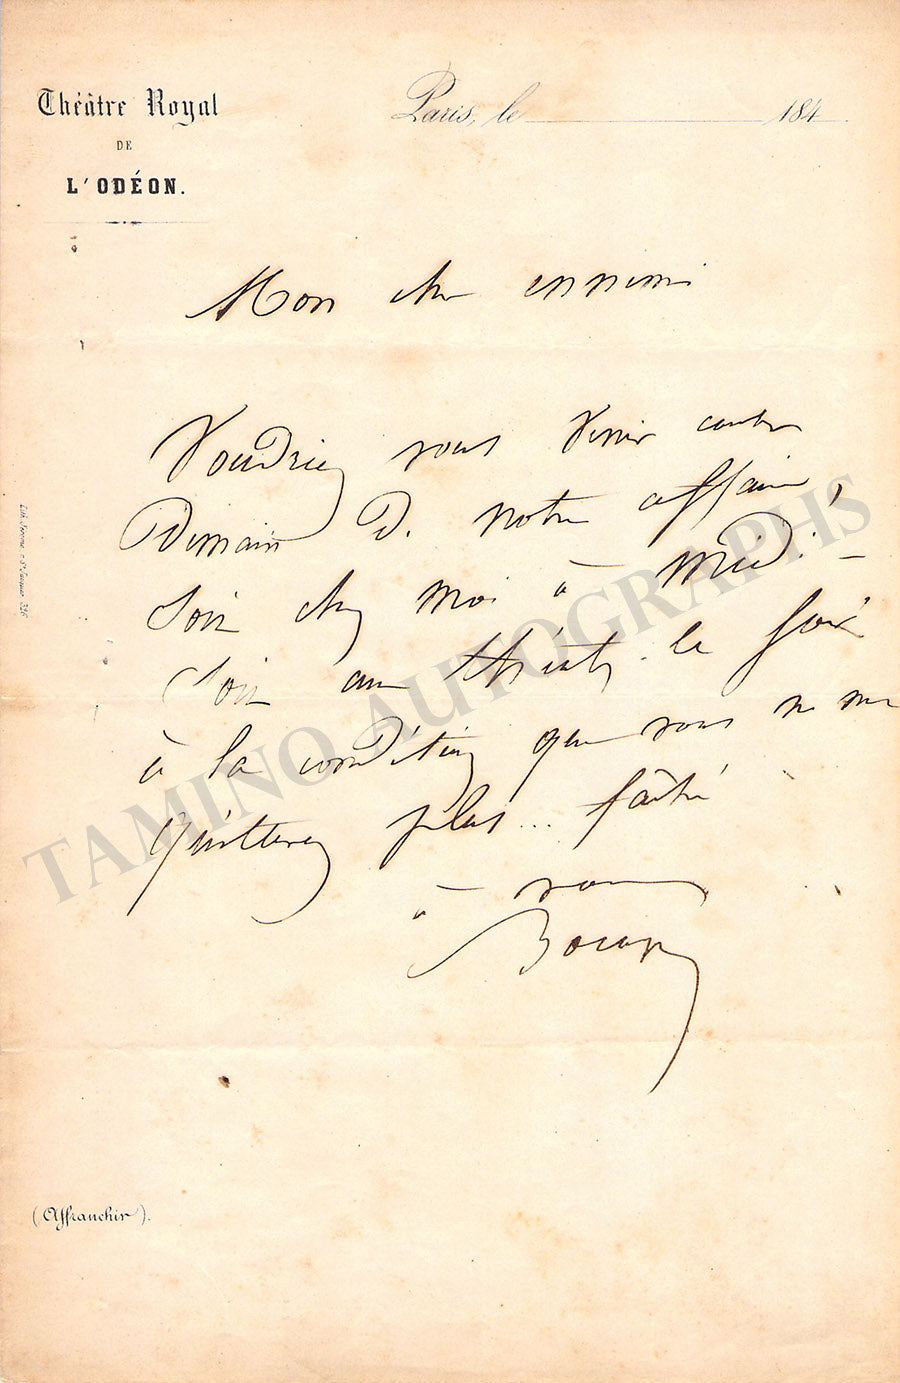 Théâtre Royal
DE
L'ODÉON.
Paris, le 184
Mon cher ennemi
Voudriez vous venir causer
Demain D. notre affaire,
soit chez moi à midi. —
soit au théâtre le soir
à la condition que vous ne me
quitterez plus... fâché
à vous
Bocage
(Affranchir).
TAMINO AUTOGRAPHS